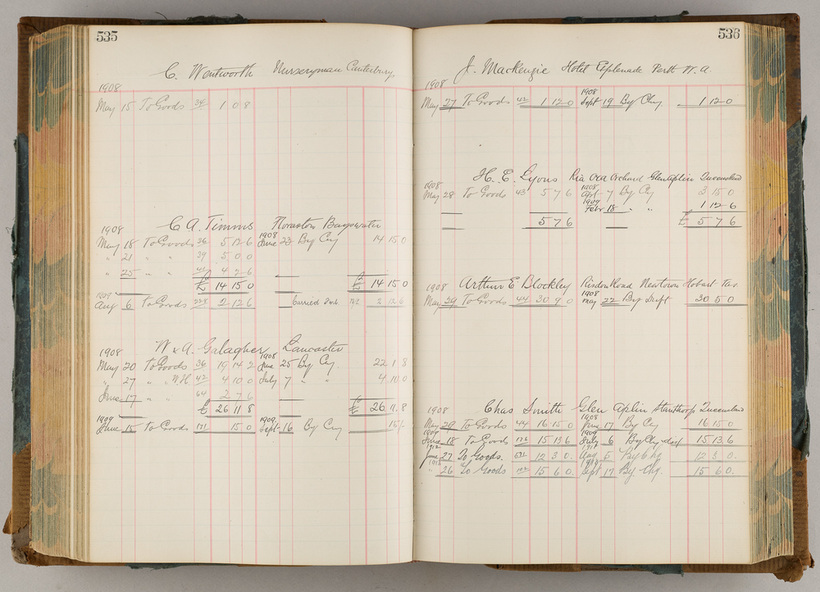 535
C. Wentworth Nurseryman Canterbury
1908
May 15 To Goods 34 1 0 8
C A. Timms Thornton Burgwater
1908
May 18 To Goods 36 5 12 6 1908 June 23 By Cqy 14 15 0
" 21 " " 39 5 0 0
" 25 " " 4 2 6
£ 14 15 0 £ 14 15 0
1908
Aug 6 To Goods 2 12 6 Carried 2 12 6
W & A. Galagher Lancaster
1908
May 20 To Goods 36 19 14 2 1908 June 25 By Cqy 22 1 8
" 27 " " 42 4 10 0 July 7 " " 4 10 0
June 17 " " 64 2 7 6
£ 26 11 8 £ 26 11 8
1909
June 15 To Goods 131 15 0 1909 Sept 16 By Cqy 15
536
J. Mackenzie Hotel Esplanade Perth W. A
1908
May 27 To Goods 42 1 12 0 1908 Sept 19 By Cqy 1 12 0
H. E. Lyons Ria Ora Orchard Glen Aplin Queensland
1908
May 28 To Goods 43 5 7 6 1908 Sept 7 By Cqy 3 15 0
Febr 18 " " 1 12 6
5 7 6 £ 5 7 6
Arthur E Blockley Risdon Road Newtown Hobart Tas
1908
May 29 To Goods 44 30 9 0 1908 May 22 By Draft 30 5 0
Chas Smith Glen Aplin Stanthorp Queensland
1908
May 29 To Goods 44 16 15 0 1908 June 17 By Cq 16 15 0
1909
June 18 To Goods 132 15 13 6 1909 July 6 By Cq 15 13 6
June 27 To Goods. 12 3 0. Aug 5 By Chq 12 3 0.
" 26 To Goods 15 6 0. Sept 17 By Chq. 15 6 0.